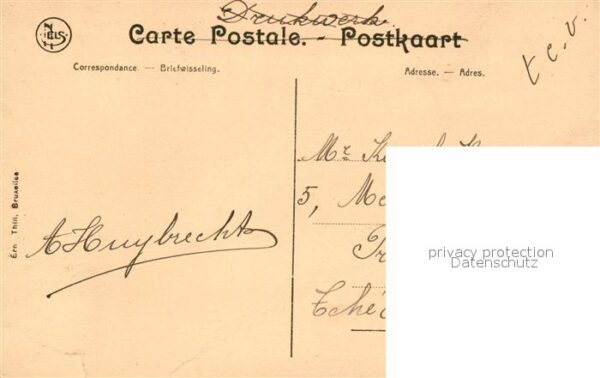 Drukwerk
NELS
Carte Postale. - Postkaart
t.c.v.
Correspondance. — Briefwisseling.
Adresse. — Adres.
Mr
5,
Ern. Thill, Bruxelles
A Huybrechts
privacy protection
Datenschutz
Tché